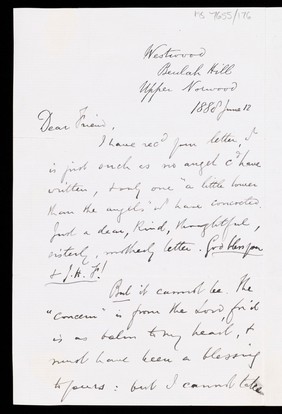 MS 7655/176
Westwood
Beulah Hill
Upper Norwood
1888 June 12
Dear Friend,
I have recd your letter, I
is just such as no angel cd have
written, & only one "a little lower
than the angels" I have concocted.
Just a dear, kind, thoughtful,
sisterly, motherly letter. God bless you
& J. H. F!
But it cannot be. The
"concern" is from the Lord, for it
is as balm to my heart, &
must have been a blessing
to yours: but I cannot take